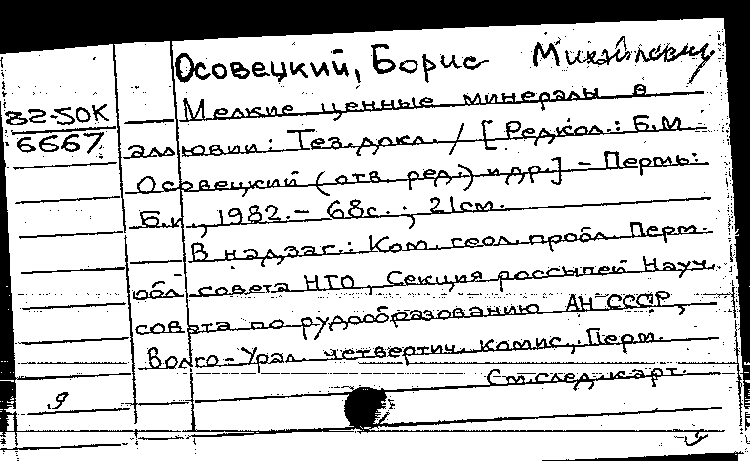 Осовецкий, Борис Михайлович
82-50К
6667
Мелкие ценные минералы в
аллювии: Тез. докл. / [Редкол.: Б.М.
Осовецкий (отв. ред.) и др.] - Пермь:
Б.и., 1982. - 68с.; 21см.
В надзаг.: Ком. геол. пробл. Перм.
обл. совета НТО, Секция россыпей Науч.
совета по рудообразованию АН СССР,
Волго-Урал. четвертич. комис., Перм.
См. след. карт.
9